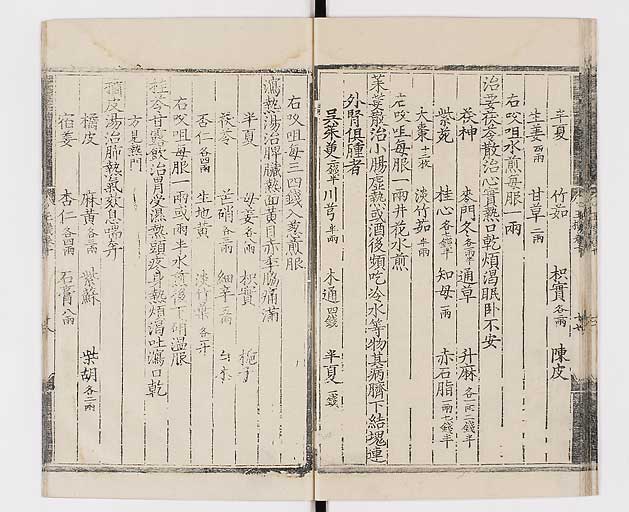 半夏 竹茹 枳實各二兩 陳皮
生姜四兩 甘草二兩
右㕮咀水煎每服一兩
治要茯苓散治心實熱口乾煩渴眠卧不安
茯神 麥門冬各兩半 通草 升麻各一兩二錢半
紫菀 桂心各二錢半 知母一兩 赤石脂一兩七錢半
大棗十二枚 淡竹茹半兩
右㕮咀每服一兩井花水煎
茱萸散治小腸虛熱或酒後頻吃冷水等物其病臍下結塊連
外腎俱腫者
吳茱萸二錢半 川芎半兩 木通四錢 半夏二錢
右㕮咀每三四錢入葱煎服
瀉熱湯治脾臟熱面黃目赤季脇痛滿
半夏 母姜各二兩 枳實 梔子
茯苓 芒硝各三兩 細辛五兩 白朮
杏仁各四兩 生地黃 淡竹葉各一升
右㕮咀每服一兩或兩半水煎後下硝溫服
桂苓甘露飲治胃受濕熱頭疼身熱煩渴吐瀉口乾
方見熱門
橘皮湯治肺熱氣欬息喘奔
橘皮 麻黃各三兩 紫蘇 柴胡各二兩
宿姜 杏仁各四兩 石膏八兩